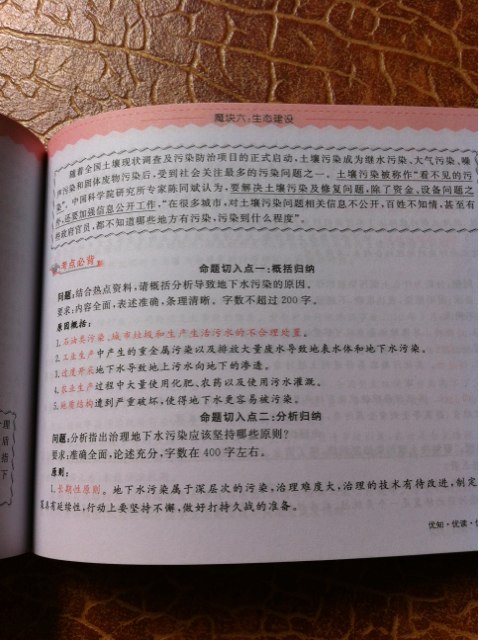 魔块六:生态建设
随着全国土壤现状调查及污染防治项目的正式启动,土壤污染成为继水污染、大气污染、噪
声污染和固体废物污染后,受到社会关注最多的污染问题之一。土壤污染被称作“看不见的污
染”。中国科学院研究所专家陈同斌认为,要解决土壤污染及修复问题,除了资金、设备问题之
外,还要加强信息公开工作。“在很多城市,对土壤污染问题相关信息不公开,百姓不知情,甚至有
些政府官员,都不知道哪些地方有污染,污染到什么程度”。
考点必背
命题切入点一:概括归纳
问题:结合热点资料,请概括分析导致地下水污染的原因。
要求:内容全面,表述准确,条理清晰。字数不超过200字。
原因概括:
1.石油类污染、城市垃圾和生产生活污水的不合理处置。
2.工业生产中产生的重金属污染以及排放大量废水导致地表水体和地下水污染。
3.过度开采地下水导致地上污水向地下的渗透。
4.农业生产过程中大量使用化肥、农药以及使用污水灌溉。
5.地质结构遭到严重破坏,使得地下水更容易被污染。
命题切入点二:分析归纳
问题:分析指出治理地下水污染应该坚持哪些原则?
要求:准确全面,论述充分,字数在400字左右。
原则:
1.长期性原则。地下水污染属于深层次的污染,治理难度大,治理的技术有待改进,制定
具有延续性,行动上要坚持不懈,做好打持久战的准备。
优知·优读·
理
盾
括
下